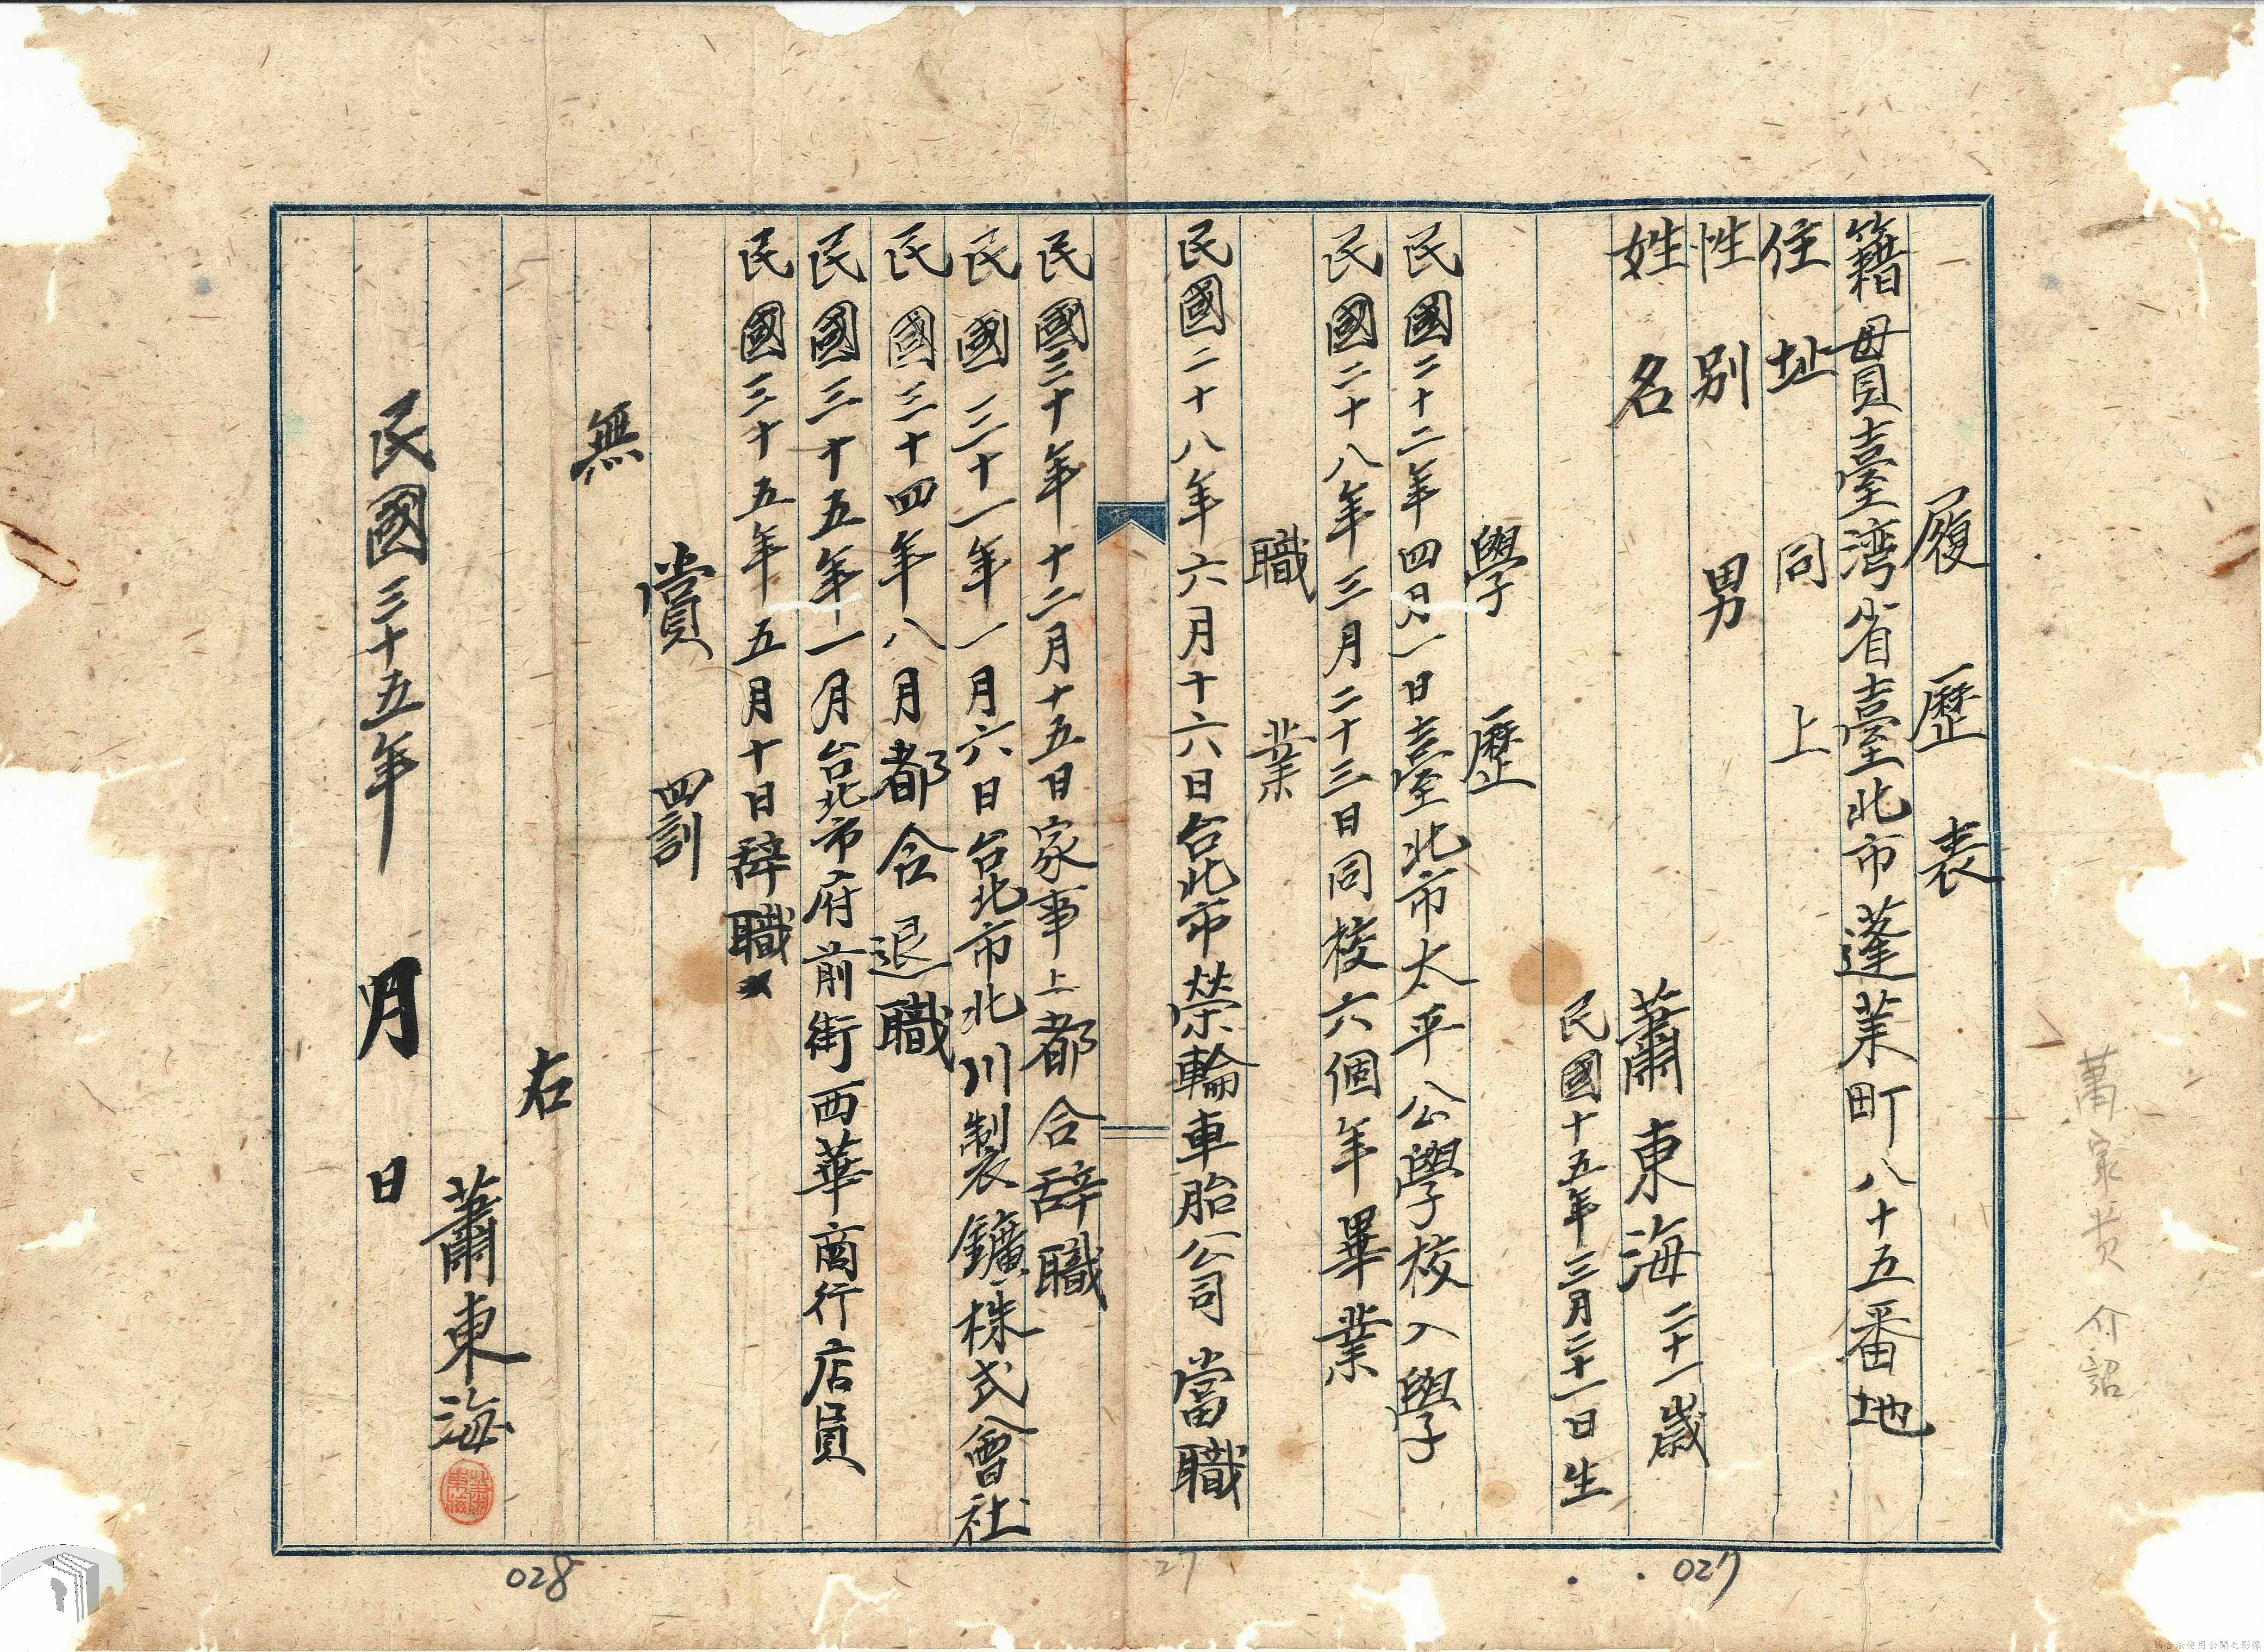 履歷表
籍貫臺湾省臺北市蓬萊町八十五番地
住址 同上
性別 男
姓名 蕭東海 二十一歲
民國十五年三月二十一日生
學歷
民國二十二年四月一日臺北市太平公學校入學
民國二十八年三月二十三日同校六個年畢業
職業
民國二十八年六月十六日台北市榮輪車胎公司當職
民國三十年十二月十五日家事上都合辞職
民國三十一年一月六日台北市北川製鑛株式會社
民國三十四年八月都合退職
民國三十五年一月台北市府前街西華商行店員
民國三十五年五月十日辞職
賞罰
無
右
蕭東海
蕭東海
民國三十五年 月 日
介詔
027
27
028